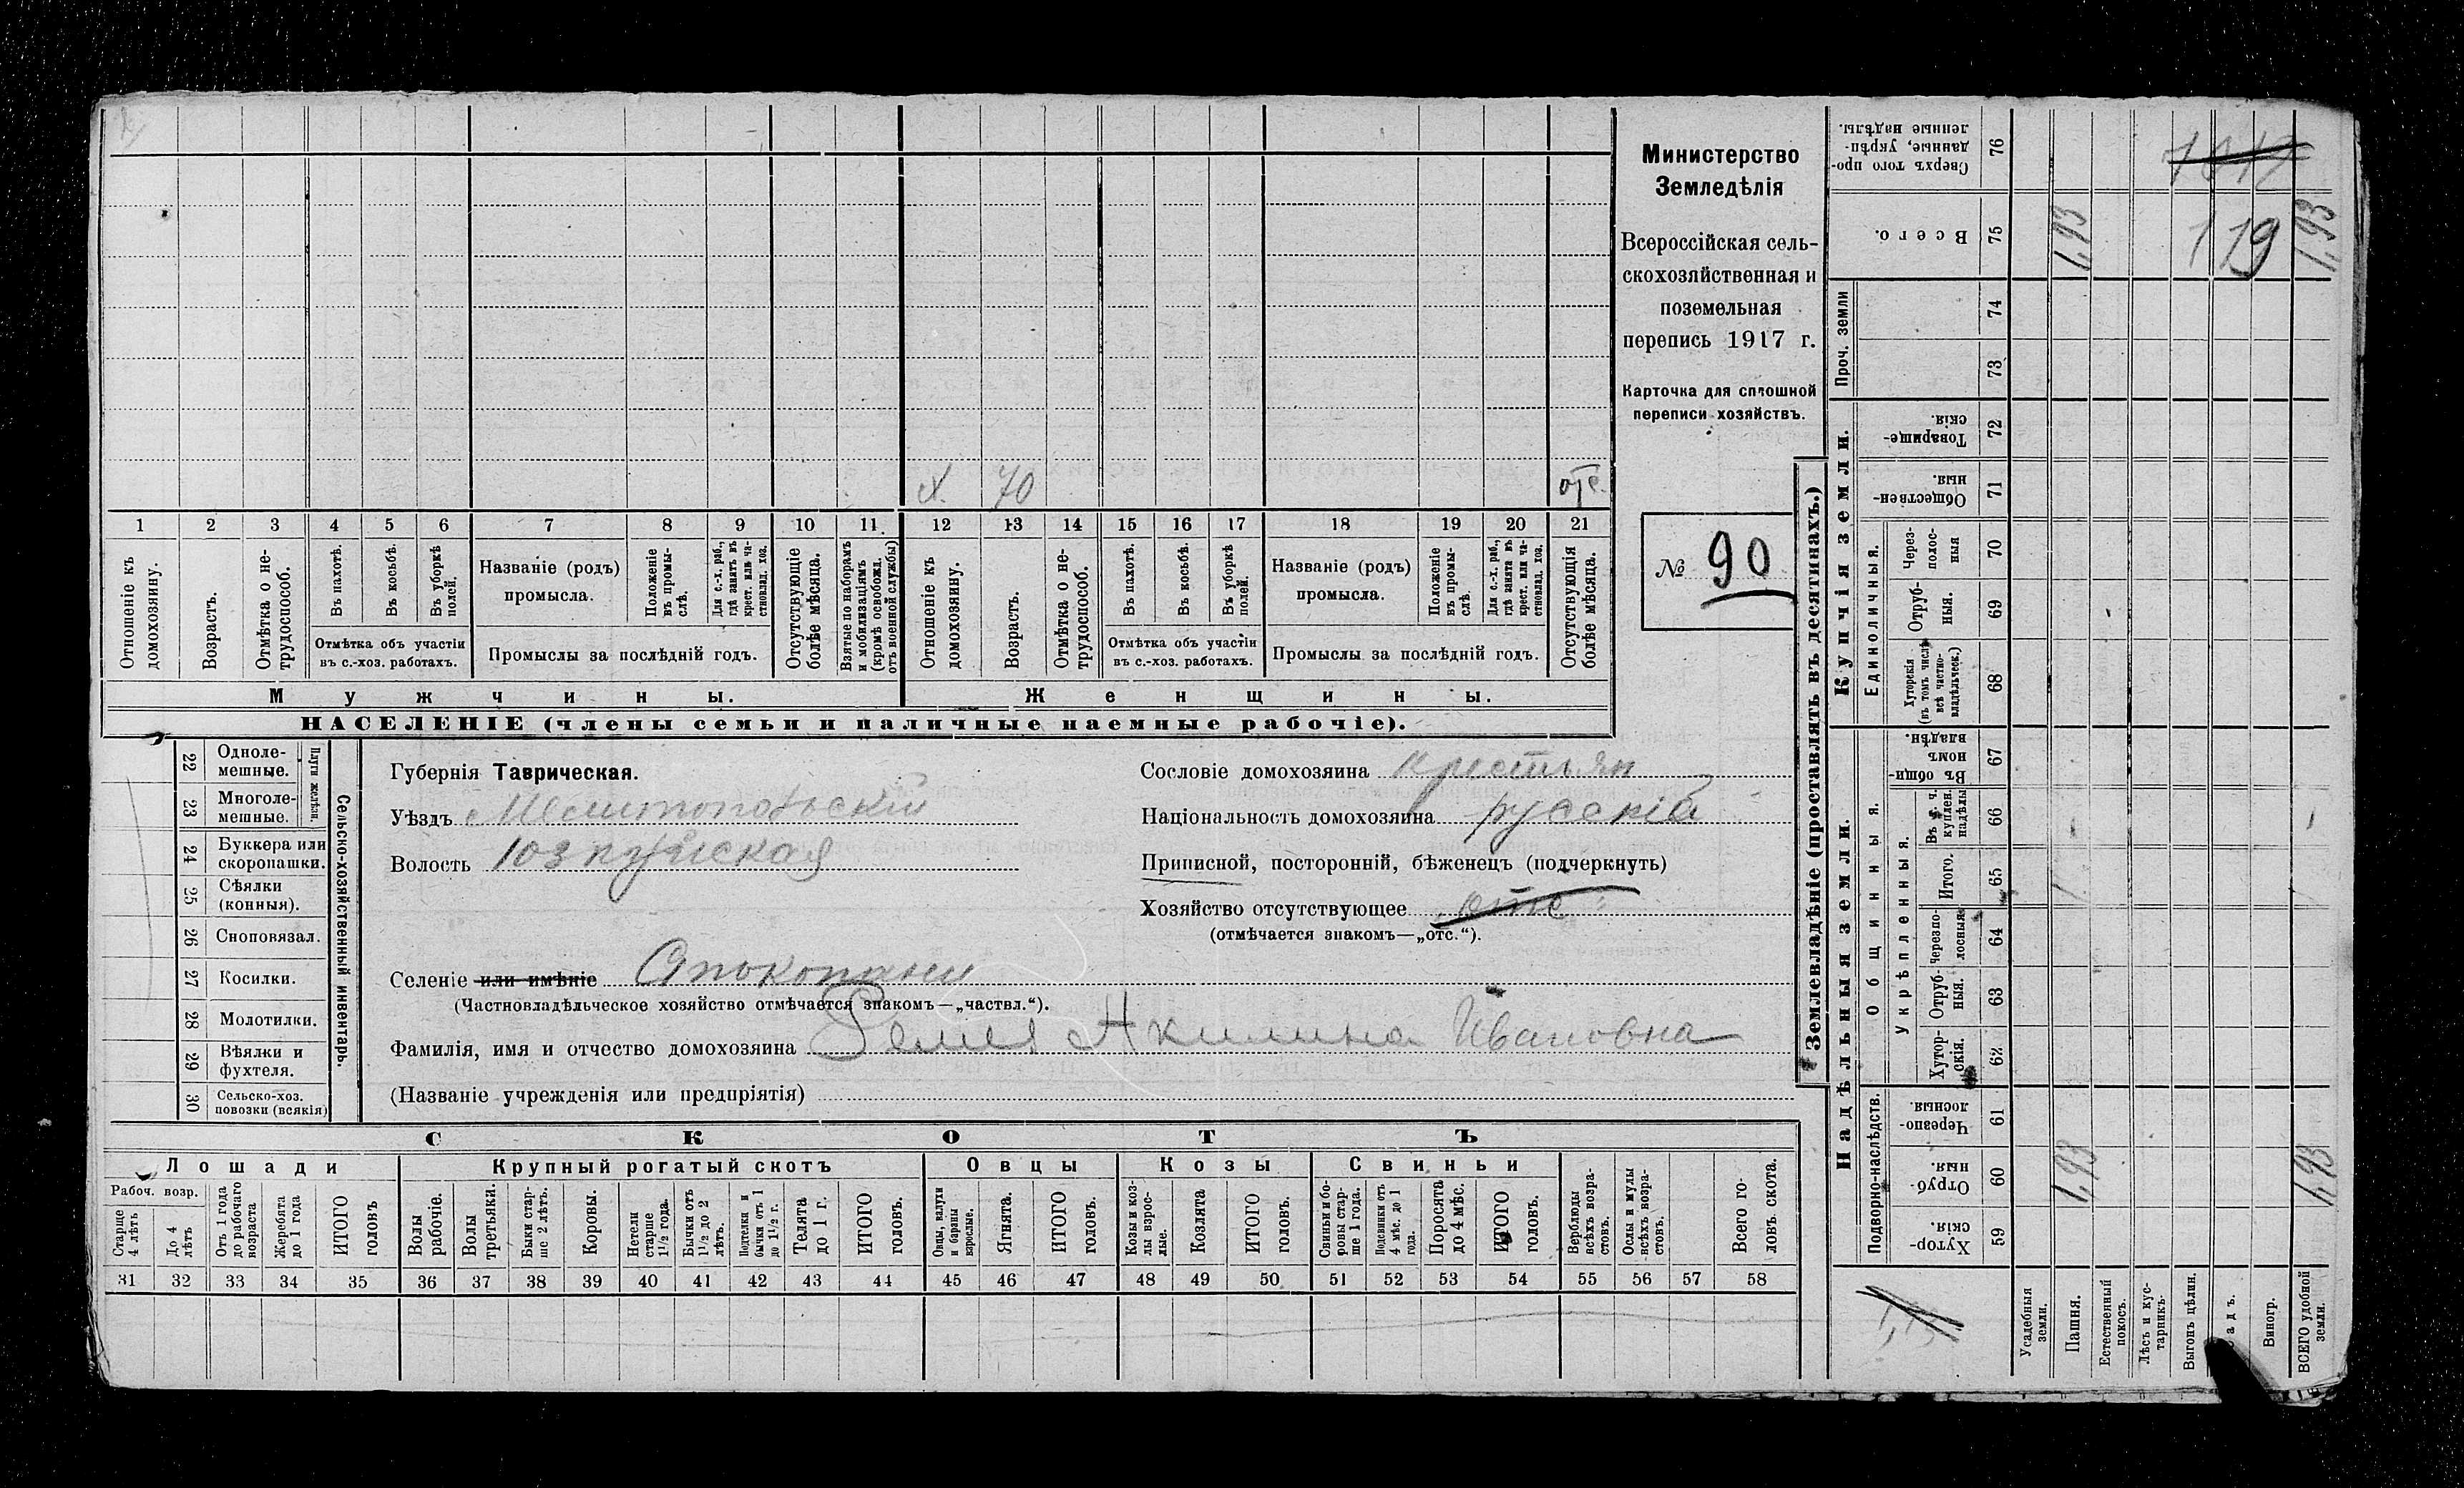 х. 70 отс.
1 2 3 4 5 6 7 8 9 10 11 12 13 14 15 16 17 18 19 20 21
Отношеніе къ домохозяину.
Возрастъ.
Отмѣтка о не-трудоспособ.
Въ пахотѣ.
Въ косьбѣ.
Въ уборкѣ полей.
Отмѣтка объ участіи
въ с.-хоз. работахъ.
Названіе (родъ)
промысла.
Положеніе въ промы-слѣ.
Для с.-х. раб., гдѣ занятъ въ крест. или ча-стновлад. хоз.
Промыслы за послѣдній годъ.
Отсутствующіе болѣе мѣсяца.
Взятые по наборамъ и мобилизаціямъ (кромѣ освобожд. отъ военной службы)
Отношеніе къ домохозяину.
Возрастъ.
Отмѣтка о не-трудоспособ.
Въ пахотѣ.
Въ косьбѣ.
Въ уборкѣ полей.
Отмѣтка объ участіи
въ с.-хоз. работахъ.
Названіе (родъ)
промысла.
Положеніе въ промы-слѣ.
Для с.-х. раб., гдѣ занята въ крест. или ча-стновлад. хоз.
Промыслы за послѣдній годъ.
Отсутствующія болѣе мѣсяца.
Мужчины. Женщины.
НАСЕЛЕНІЕ (члены семьи и наличные наемные рабочіе).
Министерство
Земледѣлія
Всероссійская сель-
скохозяйственная и
поземельная
перепись 1917 г.
Карточка для сплошной
переписи хозяйствъ.
№ 90
22 Одноле-мешные.
23 Многоле-мешные.
Плуги желѣзн.
24 Буккера или скоропашки.
25 Сѣялки (конныя).
26 Сноповязал.
27 Косилки.
28 Молотилки.
29 Вѣялки и фухтеля.
30 Сельско-хоз. повозки (всякія)
Сельско-хозяйственный инвентарь.
Губернія Таврическая.
Уѣздъ Мелитопольскій
Волость Юзкуйская
Селеніе или имѣніе
(Частновладѣльческое хозяйство отмѣчается знакомъ—„частвл.“).
Фамилія, имя и отчество домохозяина Акилина Ивановна
(Названіе учрежденія или предпріятія)
Сословіе домохозяина крестьян
Національность домохозяина русскій
Приписной, посторонній, бѣженецъ (подчеркнуть)
Хозяйство отсутствующее отс.
(отмѣчается знакомъ—„отс.“).
СКОТЪ
Лошади Крупный рогатый скотъ Овцы Козы Свиньи
Рабоч. возр.
Старше 4 лѣтъ
До 4 лѣтъ
Отъ 1 года до рабочаго возраста
Жеребята до 1 года
ИТОГО головъ
Волы рабочіе.
Волы третьяки.
Быки стар-ше 2 лѣтъ.
Коровы.
Нетели старше 1 1/2 года.
Бычки отъ 1 1/2 до 2 лѣтъ.
Подтелки и бычки отъ 1 до 1 1/2 г.
Телята до 1 г.
ИТОГО головъ.
Овцы, валухи и бараны взрослые.
Ягнята.
ИТОГО головъ.
Козы и коз-лы взрос-лые.
Козлята
ИТОГО головъ.
Свиньи и бо-ровы стар-ше 1 года.
Подсвинки отъ 4 мѣс. до 1 года.
Поросята до 4 мѣс.
ИТОГО головъ.
Верблюды всѣхъ возра-стовъ.
Ослы и мулы всѣхъ возра-стовъ.
Всего го-ловъ скота.
31 32 33 34 35 36 37 38 39 40 41 42 43 44 45 46 47 48 49 50 51 52 53 54 55 56 57 58
Землевладѣніе (проставлять въ десятинахъ.)
Сверхъ того про-данные, укрѣп-ленные надѣлы. 76
Всего. 75 1,93 119 1,93
Проч. земли 74 73
Купчія земли.
Товарище-скія. 72
Обществен-ныя. 71
Единоличныя.
Через-полос-ныя 70
Отруб-ныя. 69
Хуторскія (въ томъ числѣ всѣ частно-владѣльческ.) 68
Надѣльныя земли.
Общинныя.
Въ общи-номъ владѣн. 67
Укрѣпленныя.
Въ т. ч. куплен. надѣлы 66
Итого. 65
Черезпо-лосныя 64
Отруб-ныя. 63
Хутор-скія. 62
Подворно-наслѣдств.
Черезпо-лосныя. 61
Отруб-ныя. 60 1,93 1,93
Хутор-скія. 59
Усадебныя земли.
Пашня.
Естественный покосъ.
Лѣсъ и кус-тарникъ.
Выгонъ цѣлин.
адъ.
Виногр.
ВСЕГО удобной земли.